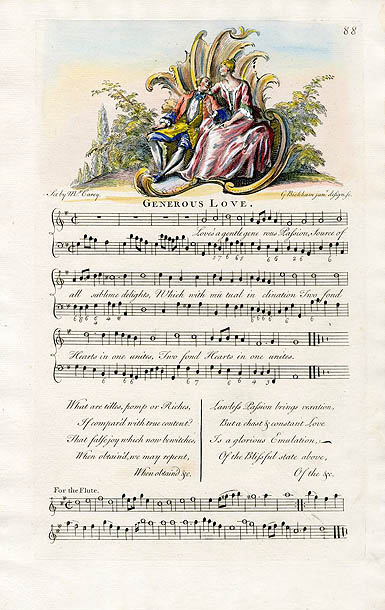 88
Set by Mr. Carey.
G. Bickham jun. design. sc.
GENEROUS LOVE.
Love's a gentle gene rous Passion, Source of
all sublime delights, Which with mu tual in clination Two fond
Hearts in one unites, Two fond Hearts in one unites.
What are titles, pomp or Riches,
If compar'd with true content?
That false joy which now bewitches,
When obtain'd, we may repent,
When obtain'd &c.
Lawless Passion brings vexation,
But a chast & constant Love
Is a glorious Emulation,
Of the Blissful state above,
Of the &c.
For the Flute.